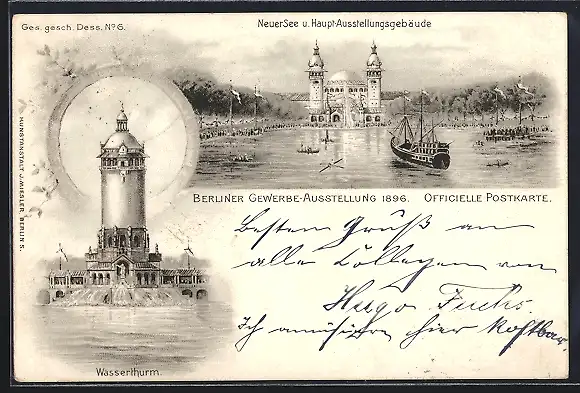 Ges. gesch. Dess. No 6.
Neuer See u. Haupt-Ausstellungsgebäude
KUNSTANSTALT J. MIESLER, BERLIN S.
BERLINER GEWERBE-AUSSTELLUNG 1896. OFFICIELLE POSTKARTE.
Besten Gruß an
alle Collegen von
Hugo Fuchs.
Ich amüsire hier kostbar.
Wasserthurm.